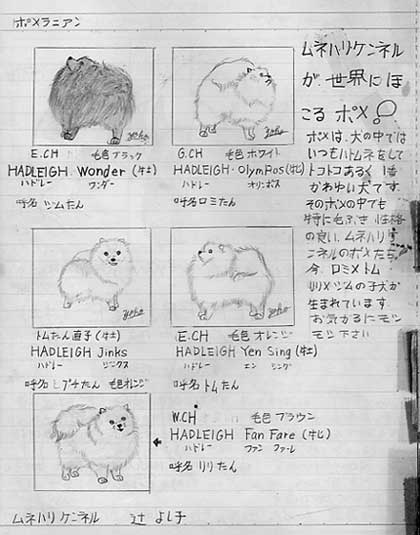 ポメラニアン
ムネハリケンネル
が世界にほ
こるポメ!
ポメは、犬の中では
いつもハトムネをして
トコトコあるく1番
かわゆい犬です。
そのポメの中でも
特に毛ぶき性格
の良い、ムネハリケ
ンネルのポメたち。
今、ロミメトム
リリメツムの子犬が
生まれています。
お気がるに
下さい
E.CH 毛色ブラック
HADLEIGH Wonder (牡)
ハドレー ワンダー
呼名 ツムたん
G.CH 毛色ホワイト
HADLEIGH・OlymPos(牝)
ハドレー オリンポス
呼名ロミたん
トムたん直子(牡)
HADLEIGH Jinks
ハドレー ジンクス
呼名 プチたん 毛色オレンジ
E.CH 毛色オレンジ
HADLEIGH Yen Sing (牡)
ハドレー エン シング
呼名トムたん
W.CH 毛色ブラウン
HADLEIGH Fan Fare (牝)
ハドレー ファン ファーレ
呼名リリたん
ムネハリケンネル 辻よし子